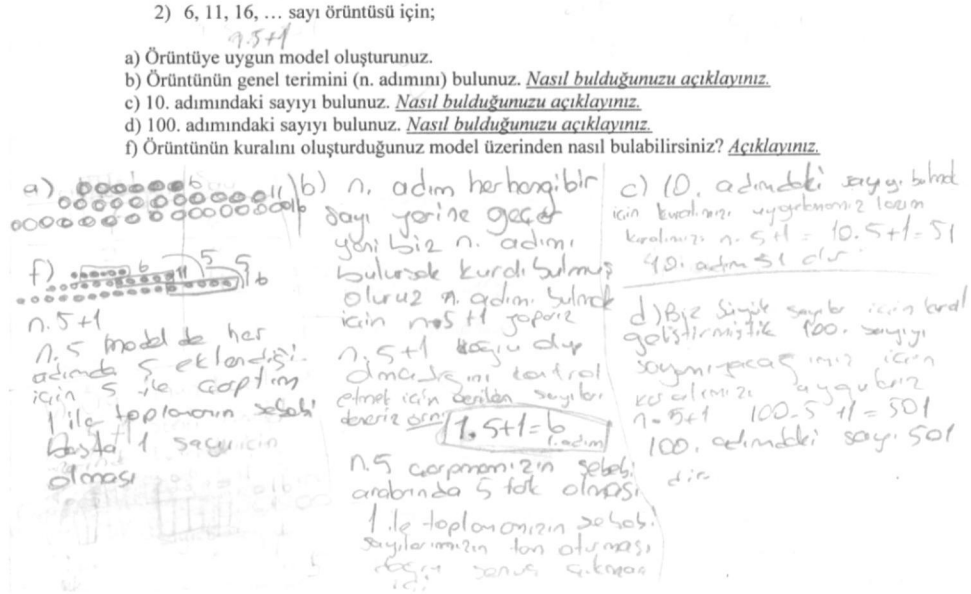 2) 6, 11, 16, … sayı örüntüsü için;
n.5+1
a) Örüntüye uygun model oluşturunuz.
b) Örüntünün genel terimini (n. adımını) bulunuz. Nasıl bulduğunuzu açıklayınız.
c) 10. adımındaki sayıyı bulunuz. Nasıl bulduğunuzu açıklayınız.
d) 100. adımındaki sayıyı bulunuz. Nasıl bulduğunuzu açıklayınız.
f) Örüntünün kuralını oluşturduğunuz model üzerinden nasıl bulabilirsiniz? Açıklayınız.
a) 6
11
16
f) 6 11 5 5 6
n.5+1
n.5 model de her
adımda 5 eklendiği
için 5 ile çarptım
1 ile toplamanın sebebi
başta 1 sayı için
olması
b) n. adım herhangi bir
sayı yerine geçer
yani biz n. adımı
bulursak kuralı bulmuş
oluruz n. adımı bulmak
için n.5+1 yaparız
n.5+1 doğru olup
olmadığını kontrol
etmek için verilen sayıları
deneriz örn 1.5+1=6
1.adım
n.5 çarpmamızın sebebi
arabrında 5 fark olması
1 ile toplamamızın sebebi
sayılarımızın tam oturması
sonuç çıkması
için
c) 10. adımdaki sayıyı bulmak
için kuralımızı uygulamamız lazım
kuralımızı n.5+1 = 10.5+1=51
10. adım 51 olur
d) Biz büyük sayılar için kural
geliştirmiştik 100. sayıyı
için
kuralımızı uygularız
n.5+1 100.5+1=501
100. adımdaki sayı 501
dir